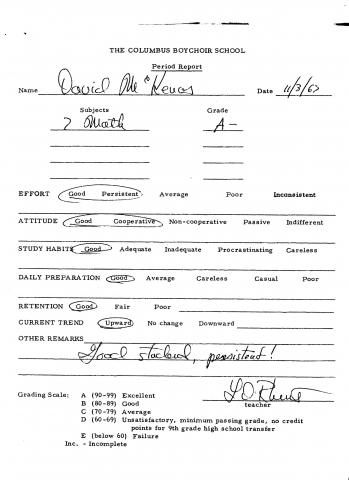 THE COLUMBUS BOYCHOIR SCHOOL
Period Report
Name David Date 11/3/67
Subjects Grade
7 Math A-
EFFORT Good Persistent Average Poor Inconsistent
ATTITUDE Good Cooperative Non-cooperative Passive Indifferent
STUDY HABITS Good Adequate Inadequate Procrastinating Careless
DAILY PREPARATION Good Average Careless Casual Poor
RETENTION Good Fair Poor
CURRENT TREND Upward No change Downward
OTHER REMARKS
Good student, persistent!
Grading Scale: A (90-99) Excellent
B (80-89) Good
C (70-79) Average
D (60-69) Unsatisfactory, minimum passing grade, no credit
points for 9th grade high school transfer
E (below 60) Failure
Inc. - Incomplete
teacher